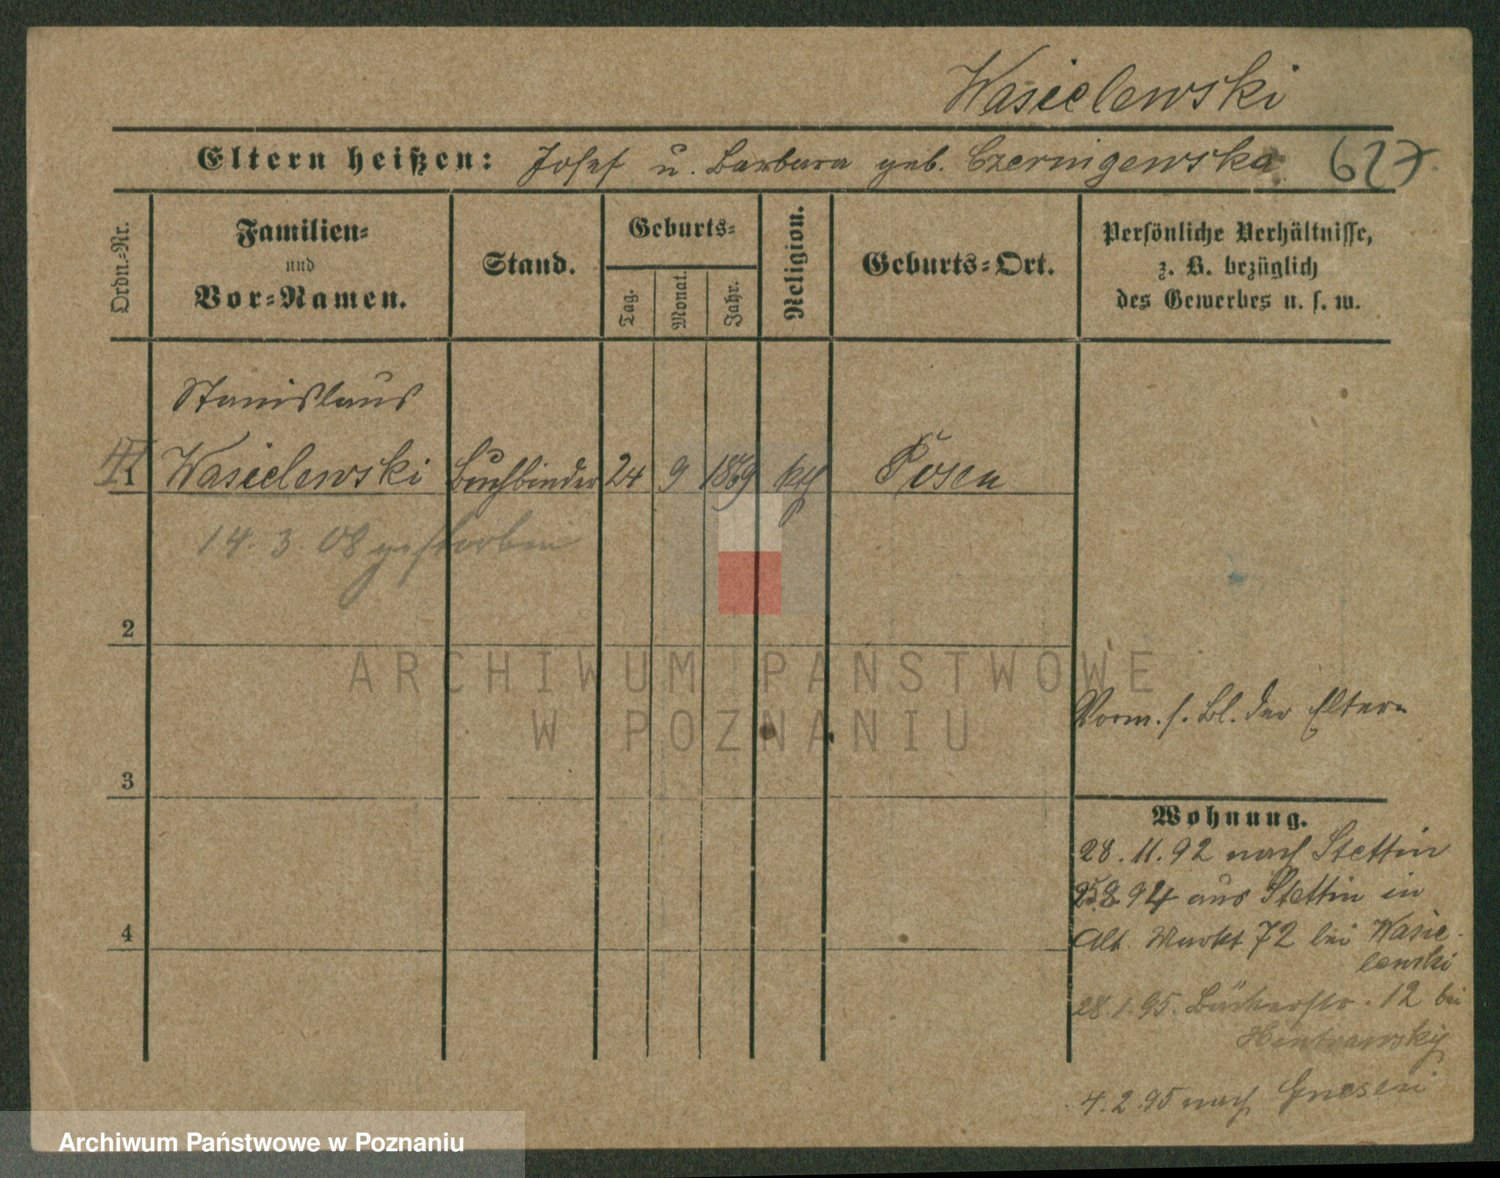 Wasielewski
Eltern heißen: Josef u. Barbara geb. Czernigewska 627
Ordn.-Nr.
Familien-
und
Vor-Namen.
Stand.
Geburts-
Tag.
Monat.
Jahr.
Religion.
Geburts-Ort.
Persönliche Verhältnisse,
z. B. bezüglich
des Gewerbes u. s. w.
Stanislaus
1 Wasielewski Buchbinder 24 9 1869 kth Posen
14. 3. 08 gestorben
2
ARCHIWUM PAŃSTWOWE
W POZNANIU
Vorm. s. Bl. der Eltern
3
Wohnung.
28. 11. 92 nach Stettin
94 aus Stettin in
4
Alt. Markt 72 bei Wasie-
lewski
28. 1. 95. Bäckerstr. 12 bei
4. 2. 95 nach Gnesen
Archiwum Państwowe w Poznaniu